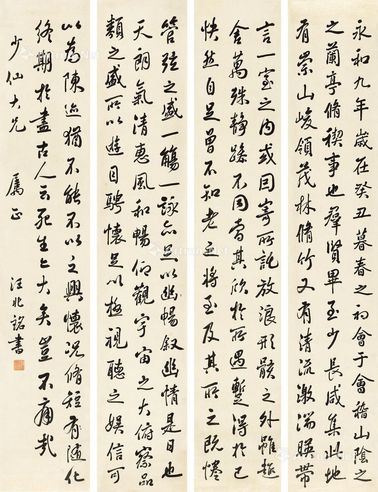 永和九年歲在癸丑暮春之初會于會稽山陰之
之蘭亭脩禊事也羣賢畢至少長咸集此地
有崇山峻領茂林脩竹又有清流激湍暎帶
言一室之內或因寄所託放浪形骸之外雖趣
舍萬殊靜躁不同當其欣於所遇暫得於己
快然自足曾不知老之將至及其所之既惓
管弦之盛一觴一詠亦足以暢叙幽情是日也
天朗氣清惠風和暢仰觀宇宙之大俯察品
類之盛所以遊目騁懷足以極視聽之娛信可
以為陳迹猶不能不以之興懷況脩短隨化
終期於盡古人云死生亦大矣豈不痛哉
少仙大兄 屬正 汪兆銘書